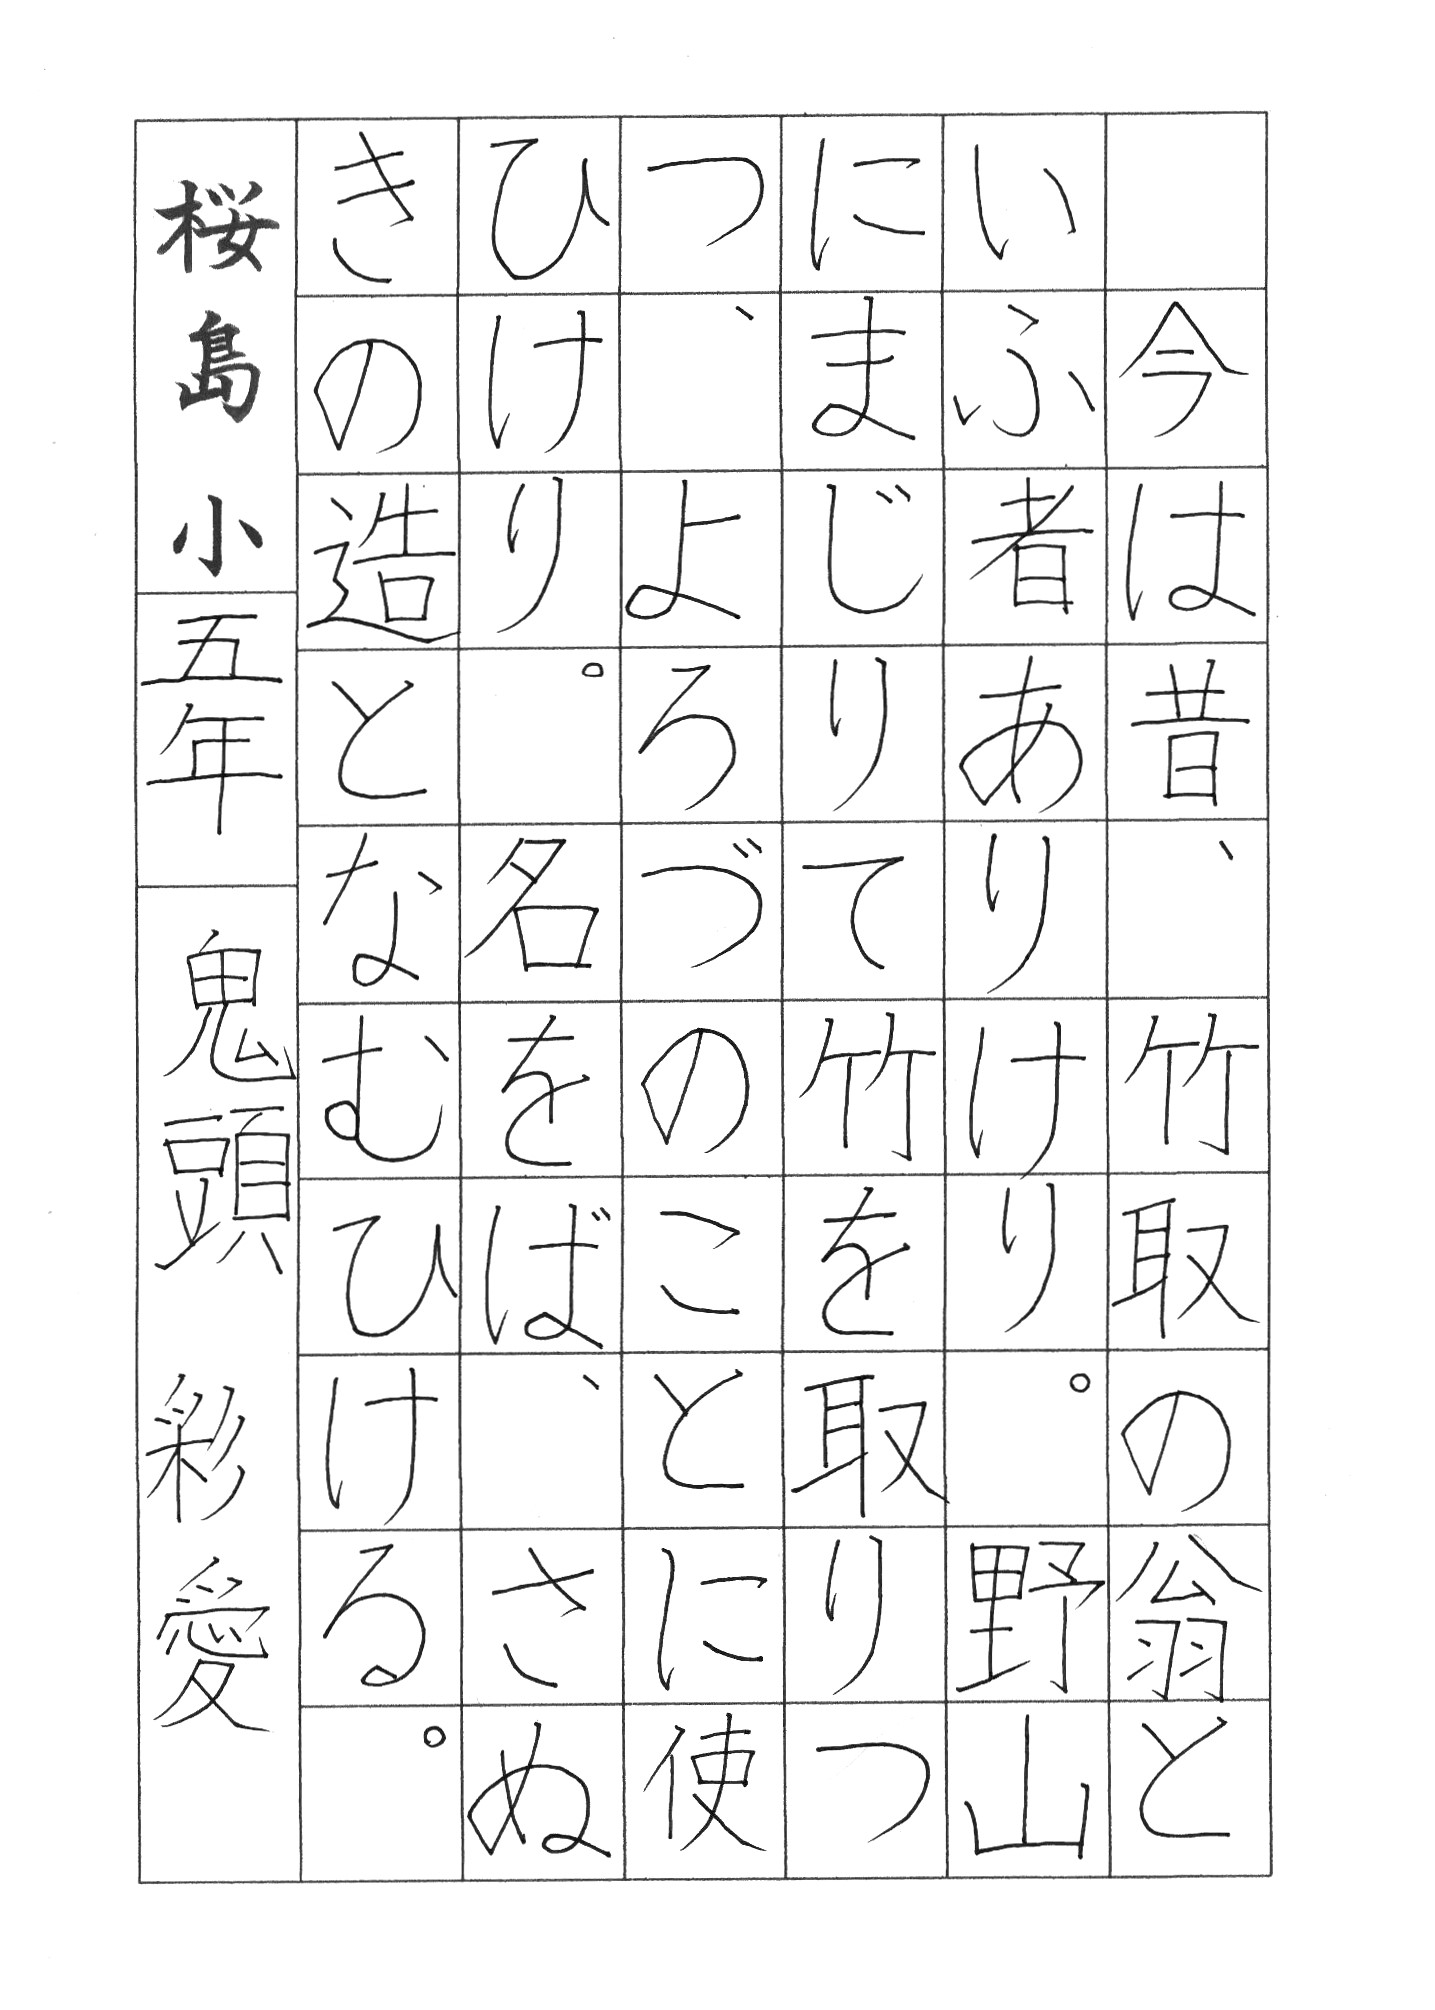 今は昔、竹取の翁と
いふ者ありけり。野山
にまじりて竹を取りつ
つ、よろづのことに使
ひけり。名をば、さぬ
きの造となむひける。
桜島小 五年 鬼頭 彩愛